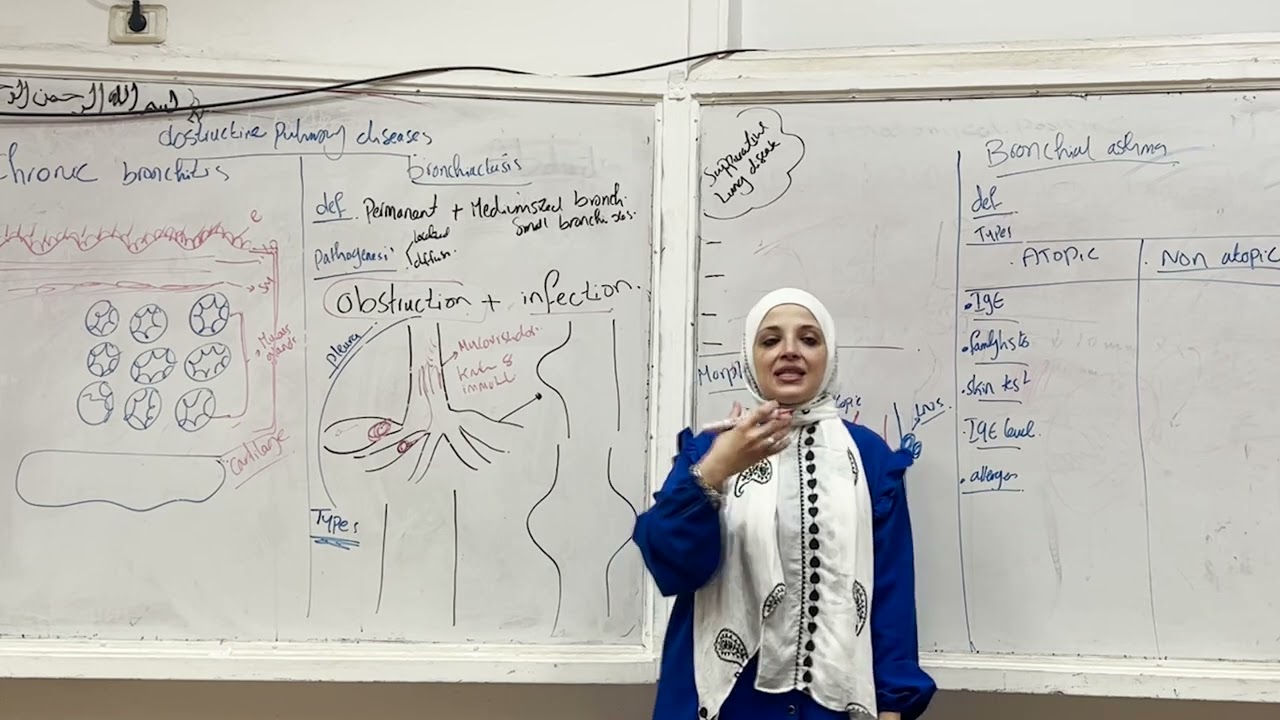 بسم الله الرحمن الرحيم
obstructive pulmonary diseases
chronic bronchitis
e
Mucus
glands
cartilage
bronchiactasis
def Permanent + Mediumsized branch.
Small bronchi
Pathogenesi
localized
diffuse
Obstruction + infection.
pleura
immotil
Types
Suppurative
Lung disease
Morph
Bronchial asthma
def
Types
Atopic
Non atopic
IgE
skin test
IgE level
allergen